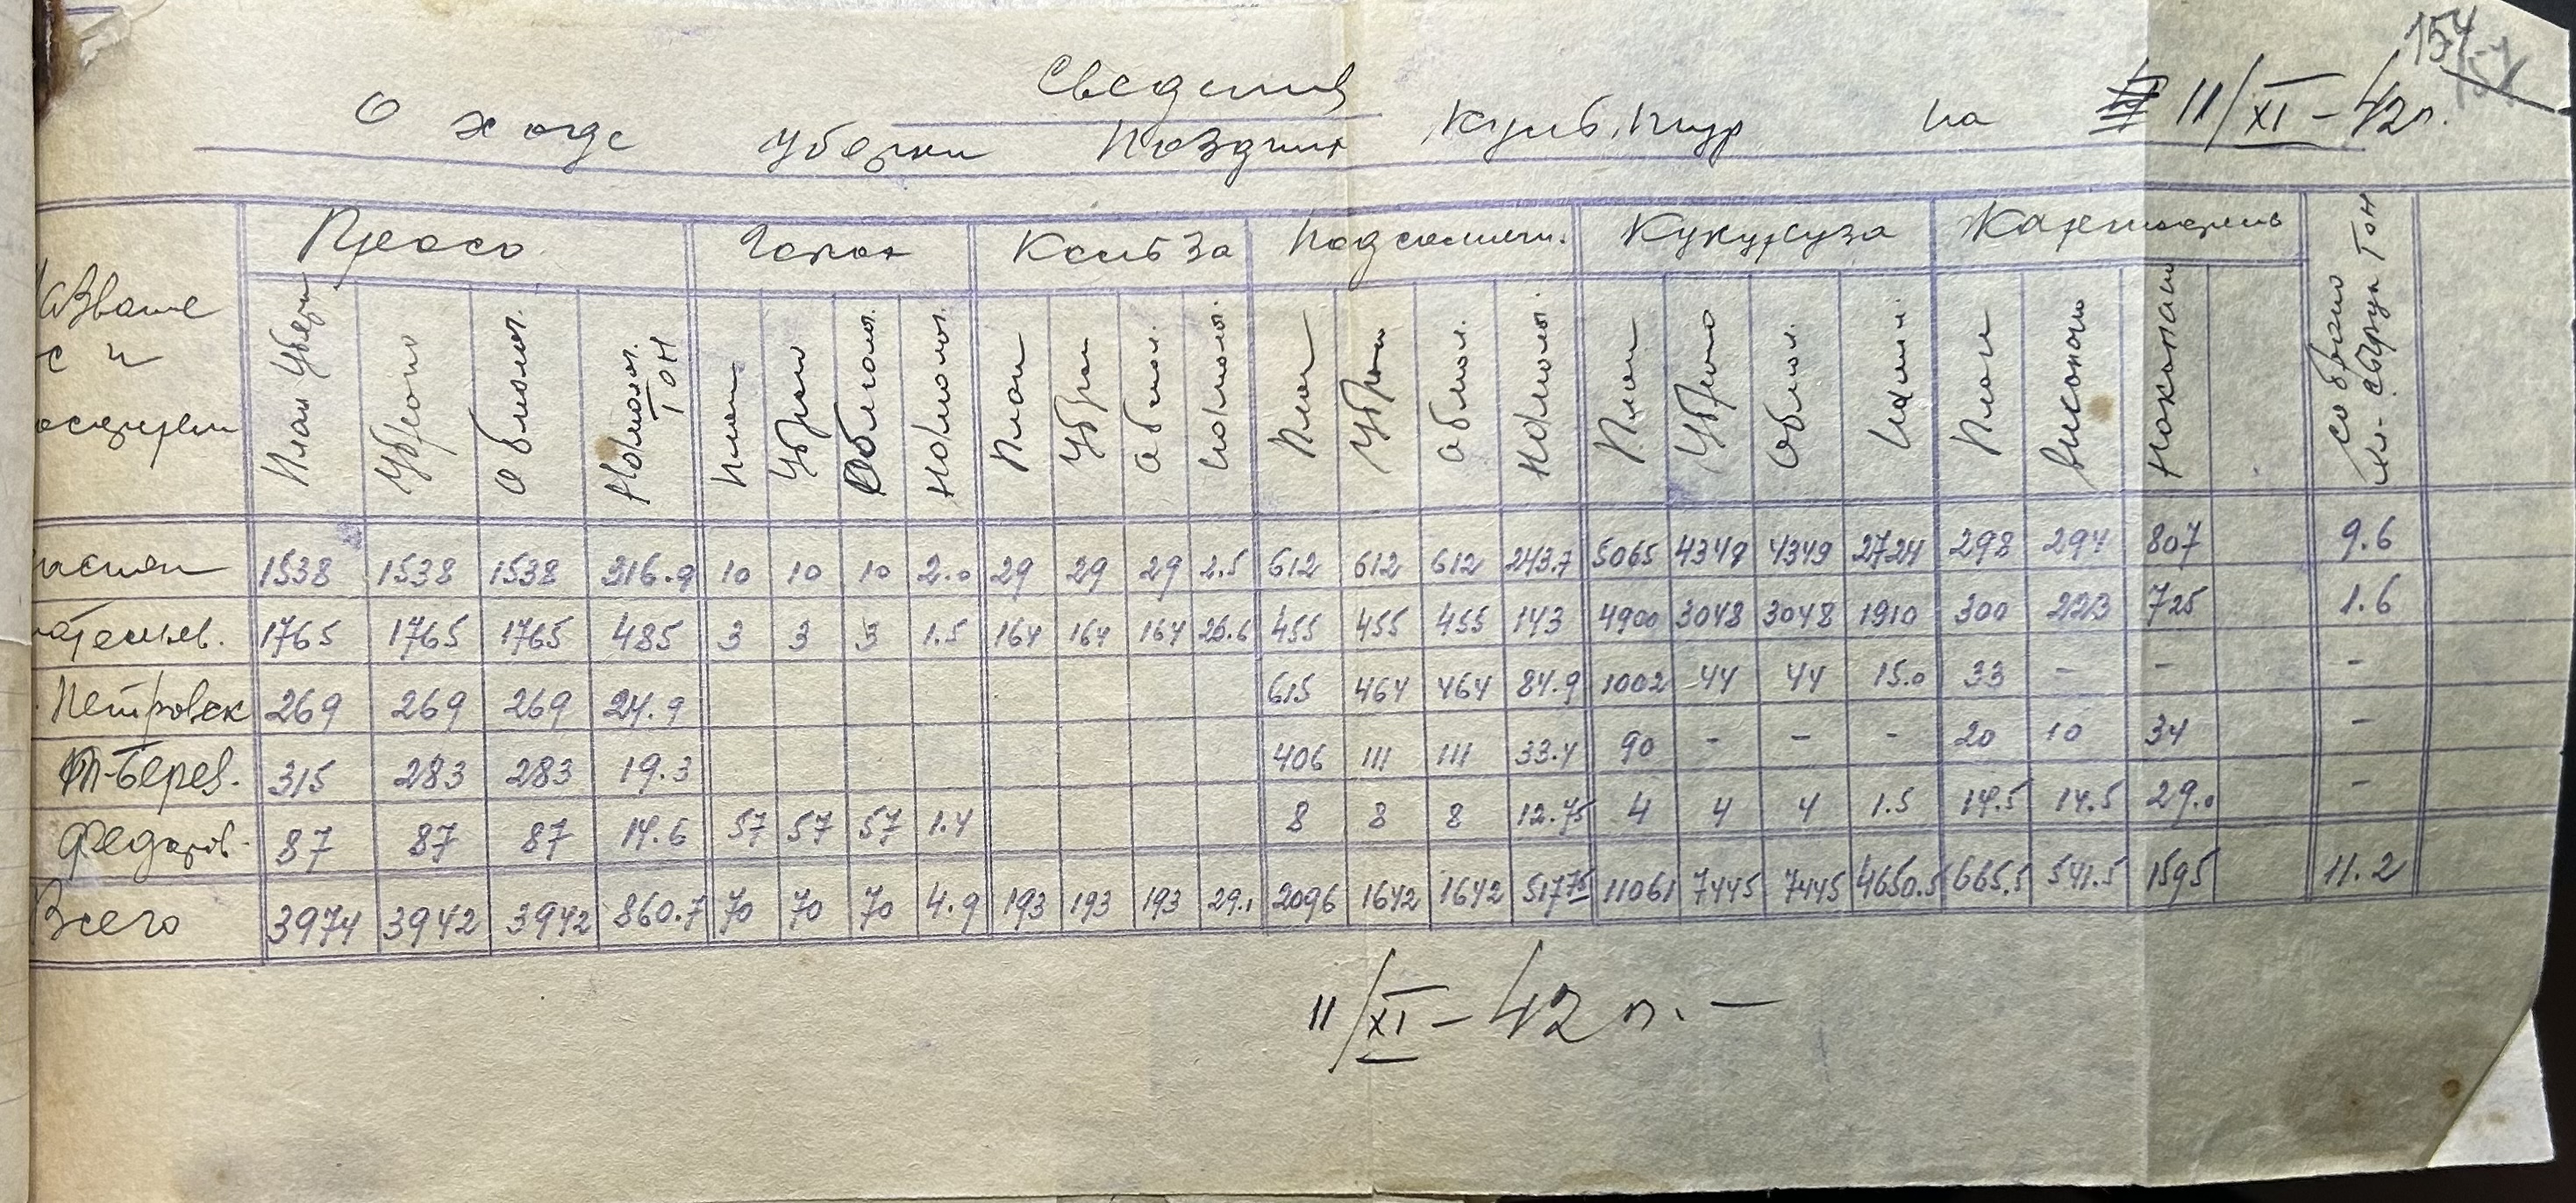 154
Сведения
О ходе уборки поздних культур на 11/XI – 42 г.
Просо Кольза Подсолнечн. Кукуруза Картофель
План уборки Убрано Обмолот. Намолот. Тон План Убран Обмолот. Намолот. План Убран Обмол. Намолот. План Убран Обмол. Намолот. План Убрано Обмол. План Выкопано Накопано Собрано Тон
1538 1538 1538 316.9 10 10 10 2.0 29 29 29 2.5 612 612 612 243.7 5065 4349 4349 2724 298 294 807 9.6
1765 1765 1765 485 3 3 3 1.5 164 164 164 26.6 455 455 455 143 4900 3048 3048 1910 300 223 725 1.6
Петровск 269 269 269 24.9 615 464 464 84.9 1002 44 44 15.0 33 – – –
Берев. 315 283 283 19.3 406 111 111 33.4 90 – – – 20 10 34 –
Федоров. 87 87 87 14.6 57 57 57 1.4 8 8 8 12.75 4 4 4 1.5 14.5 14.5 29.0 –
Всего 3974 3942 3942 860.7 70 70 70 4.9 193 193 193 29.1 2096 1642 1642 517.75 11061 7445 7445 4650.5 665.5 541.5 1595 11.2
11/XI – 42 г. –